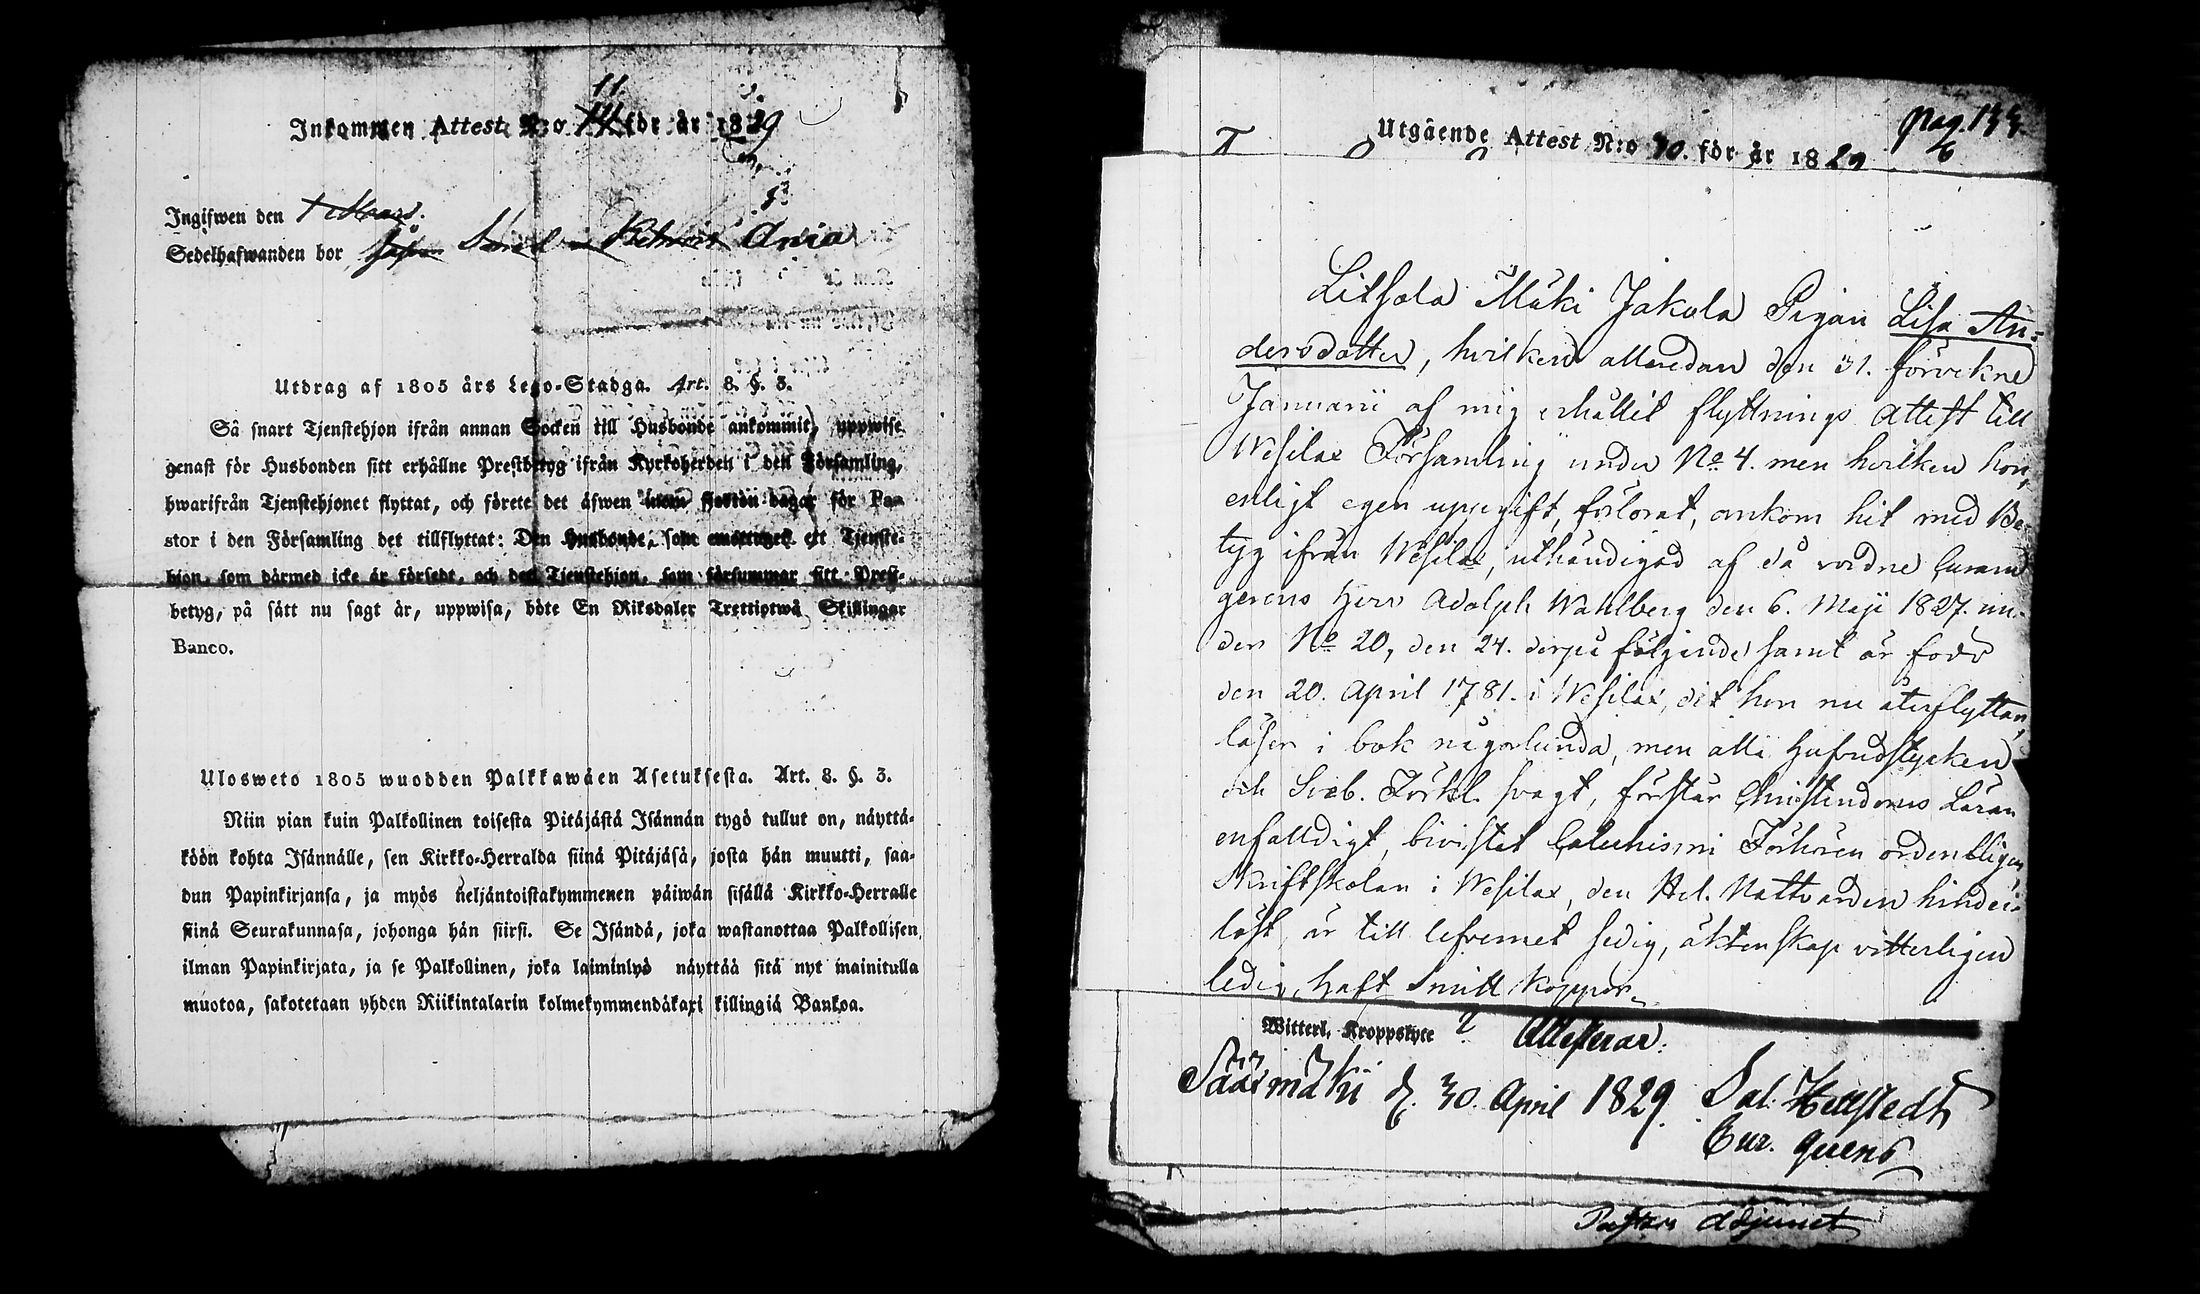 11.
Inkommen Attest N:o 14 för år 1829
Ingifwen den 1 Mars.
Sedelhafwanden bor Ania
Utdrag af 1805 års Lego-Stadga. Art. 8. §. 3.
Så snart Tjenstehjon ifrån annan Socken till Husbonde ankommit, uppwise
genast för Husbonden sitt erhållne Prestbetyg ifrån Kyrkoherden i den Församling,
hwarifrån Tjenstehjonet flyttat, och förete det äfwen inom fjorton dagar för Pa-
stor i den Församling det tillflyttat: Den Husbonde, som emottager ett Tjenste-
hjon, som därmed icke är försedt, och det Tjenstehjon, som försummar sitt Prest-
betyg, på sätt nu sagt är, uppwisa, böte En Riksdaler Trettiotwå Skillingar
Banco.
Ulosweto 1805 wuodden Palkkawäen Asetuksesta. Art. 8. §. 3.
Niin pian kuin Palkollinen toisesta Pitäjästä Isännän tygö tullut on, näyttä-
köön kohta Isännälle, sen Kirkko-Herralda siinä Pitäjäsä, josta hän muutti, saa-
dun Papinkirjansa, ja myös neljäntoistakymmenen päiwän sisällä Kirkko-Herralle
siinä Seurakunnasa, johonga hän siirsi. Se Isändä, joka wastanottaa Palkollisen,
ilman Papinkirjata, ja se Palkollinen, joka laiminlyö näyttää sitä nyt mainitulla
muotoa, sakotetaan yhden Riikintalarin kolmekymmendäkaxi killingiä Bankoa.
Pag. 133.
6
Utgående Attest N:o 30. för år 1829
Litsola Mäki Jakola Pigan Lisa An-
dersdotter, hvilken alleredan den 31. förvekne
Januarii af mig erhållit flyttnings Attest till
Wesilax Församling under No 4. men hvilken hon,
enligt egen uppgift, förlorat, ankom hit med Be-
tyg ifrån Wesilax, uthändigad af då vordne Curam
gerens Herr Adolph Wahlberg den 6. Maji 1827. un-
der No 20, den 24. derpå följande samt är född
den 20. April 1781. i Wesilax, dit hon nu återflyttar,
läser i bok någorlunda, men alla hufvudstycken
och Sveb. Förkl. svagt, förstår Christendoms Läran
enfalldigt, bivistat Catechismi Förhören ordentligen
Skriftskolan i Wesilax, den Hel. Nattvarden hinder-
löst, är till lefvernet sedig, äktenskap vitterligen
ledig, haft Smitt koppor.
Witterl. Kroppslyte ? Attesterar.
Sääxmäki d. 30. April 1829. Sal. Hellstedt
Cur. gerens
Pastors Adjunct